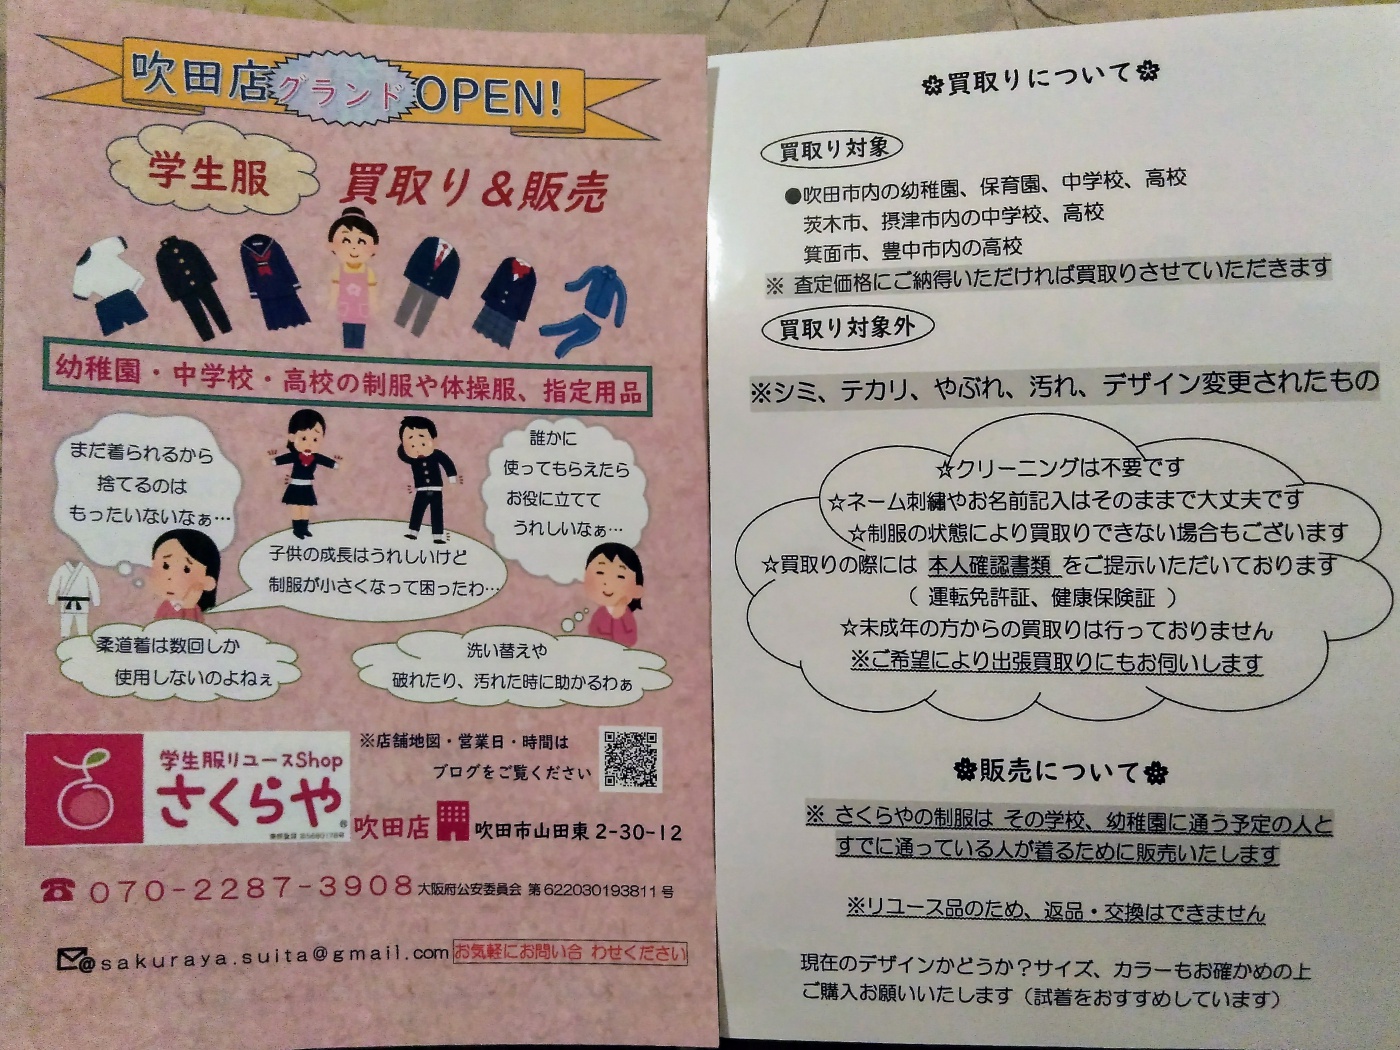 吹田店グランドOPEN!
学生服 買取り&販売
幼稚園・中学校・高校の制服や体操服、指定用品
まだ着られるから
捨てるのは
もったいないなぁ…
誰かに
使ってもらえたら
お役に立てて
うれしいなぁ…
子供の成長はうれしいけど
制服が小さくなって困ったわ…
柔道着は数回しか
使用しないのよねぇ
洗い替えや
破れたり、汚れた時に助かるわぁ
学生服リユースShop
さくらや
※店舗地図・営業日・時間は
ブログをご覧ください
吹田店 吹田市山田東 2-30-12
☎070-2287-3908 大阪府公安委員会 第622030193811号
@sakuraya.suita@gmail.com お気軽にお問い合 わせください
買取りについて
買取り対象
●吹田市内の幼稚園、保育園、中学校、高校
茨木市、摂津市内の中学校、高校
箕面市、豊中市内の高校
※ 査定価格にご納得いただければ買取りさせていただきます
買取り対象外
※シミ、テカリ、やぶれ、汚れ、デザイン変更されたもの
☆クリーニングは不要です
☆ネーム刺繍やお名前記入はそのままで大丈夫です
☆制服の状態により買取りできない場合もございます
☆買取りの際には 本人確認書類 をご提示いただいております
( 運転免許証、健康保険証 )
☆未成年の方からの買取りは行っておりません
※ご希望により出張買取りにもお伺いします
販売について
※ さくらやの制服は その学校、幼稚園に通う予定の人と
すでに通っている人が着るために販売いたします
※リユース品のため、返品・交換はできません
現在のデザインかどうか?サイズ、カラーもお確かめの上
ご購入お願いいたします(試着をおすすめしています)